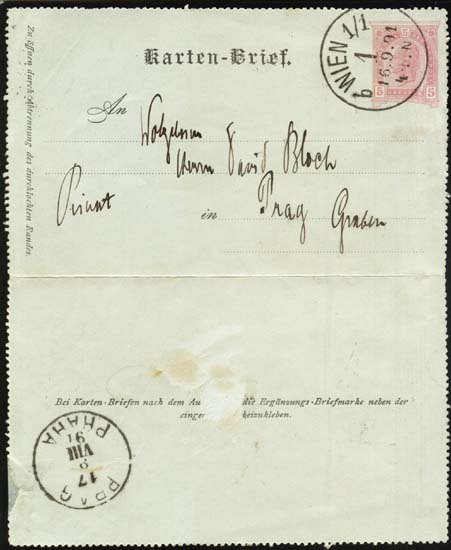 Zu öffnen durch Abtrennung des durchlochten Randes.
Karten-Brief.
WIEN 1/1
1
16.9.91
4 · N
b
5 5
An
Herrn David Bloch
Privat
in Prag Graben
Bei Karten-Briefen nach dem Au die Ergänzungs-Briefmarke neben der
einge eizukleben.
PRAG
17
9
VIII
91
PRAHA